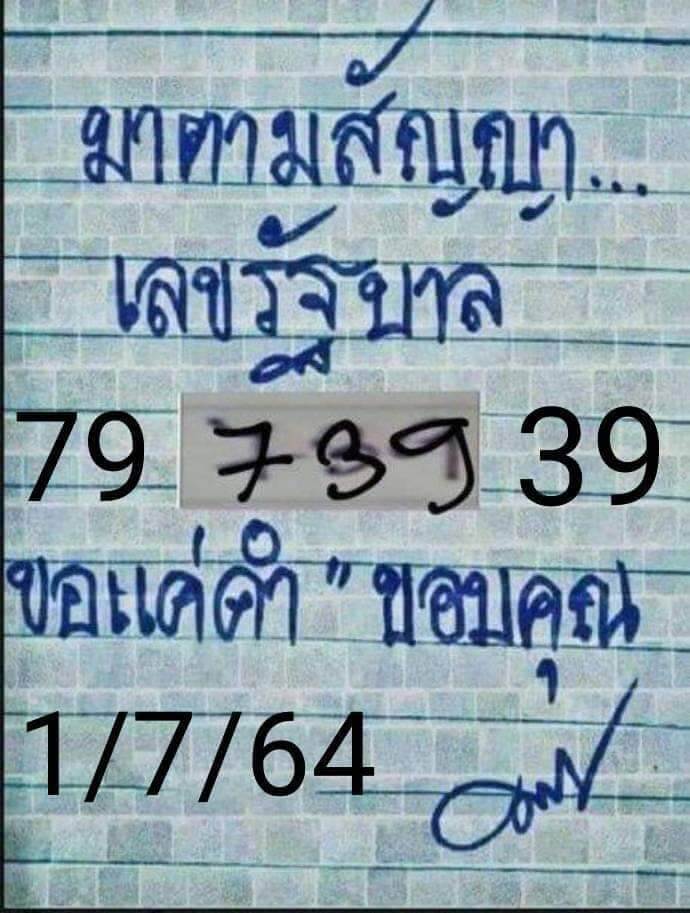 มาตามสัญญา...
เลขรัฐบาล
79 739 39
ขอแค่คำ " ขอบคุณ
1/7/64